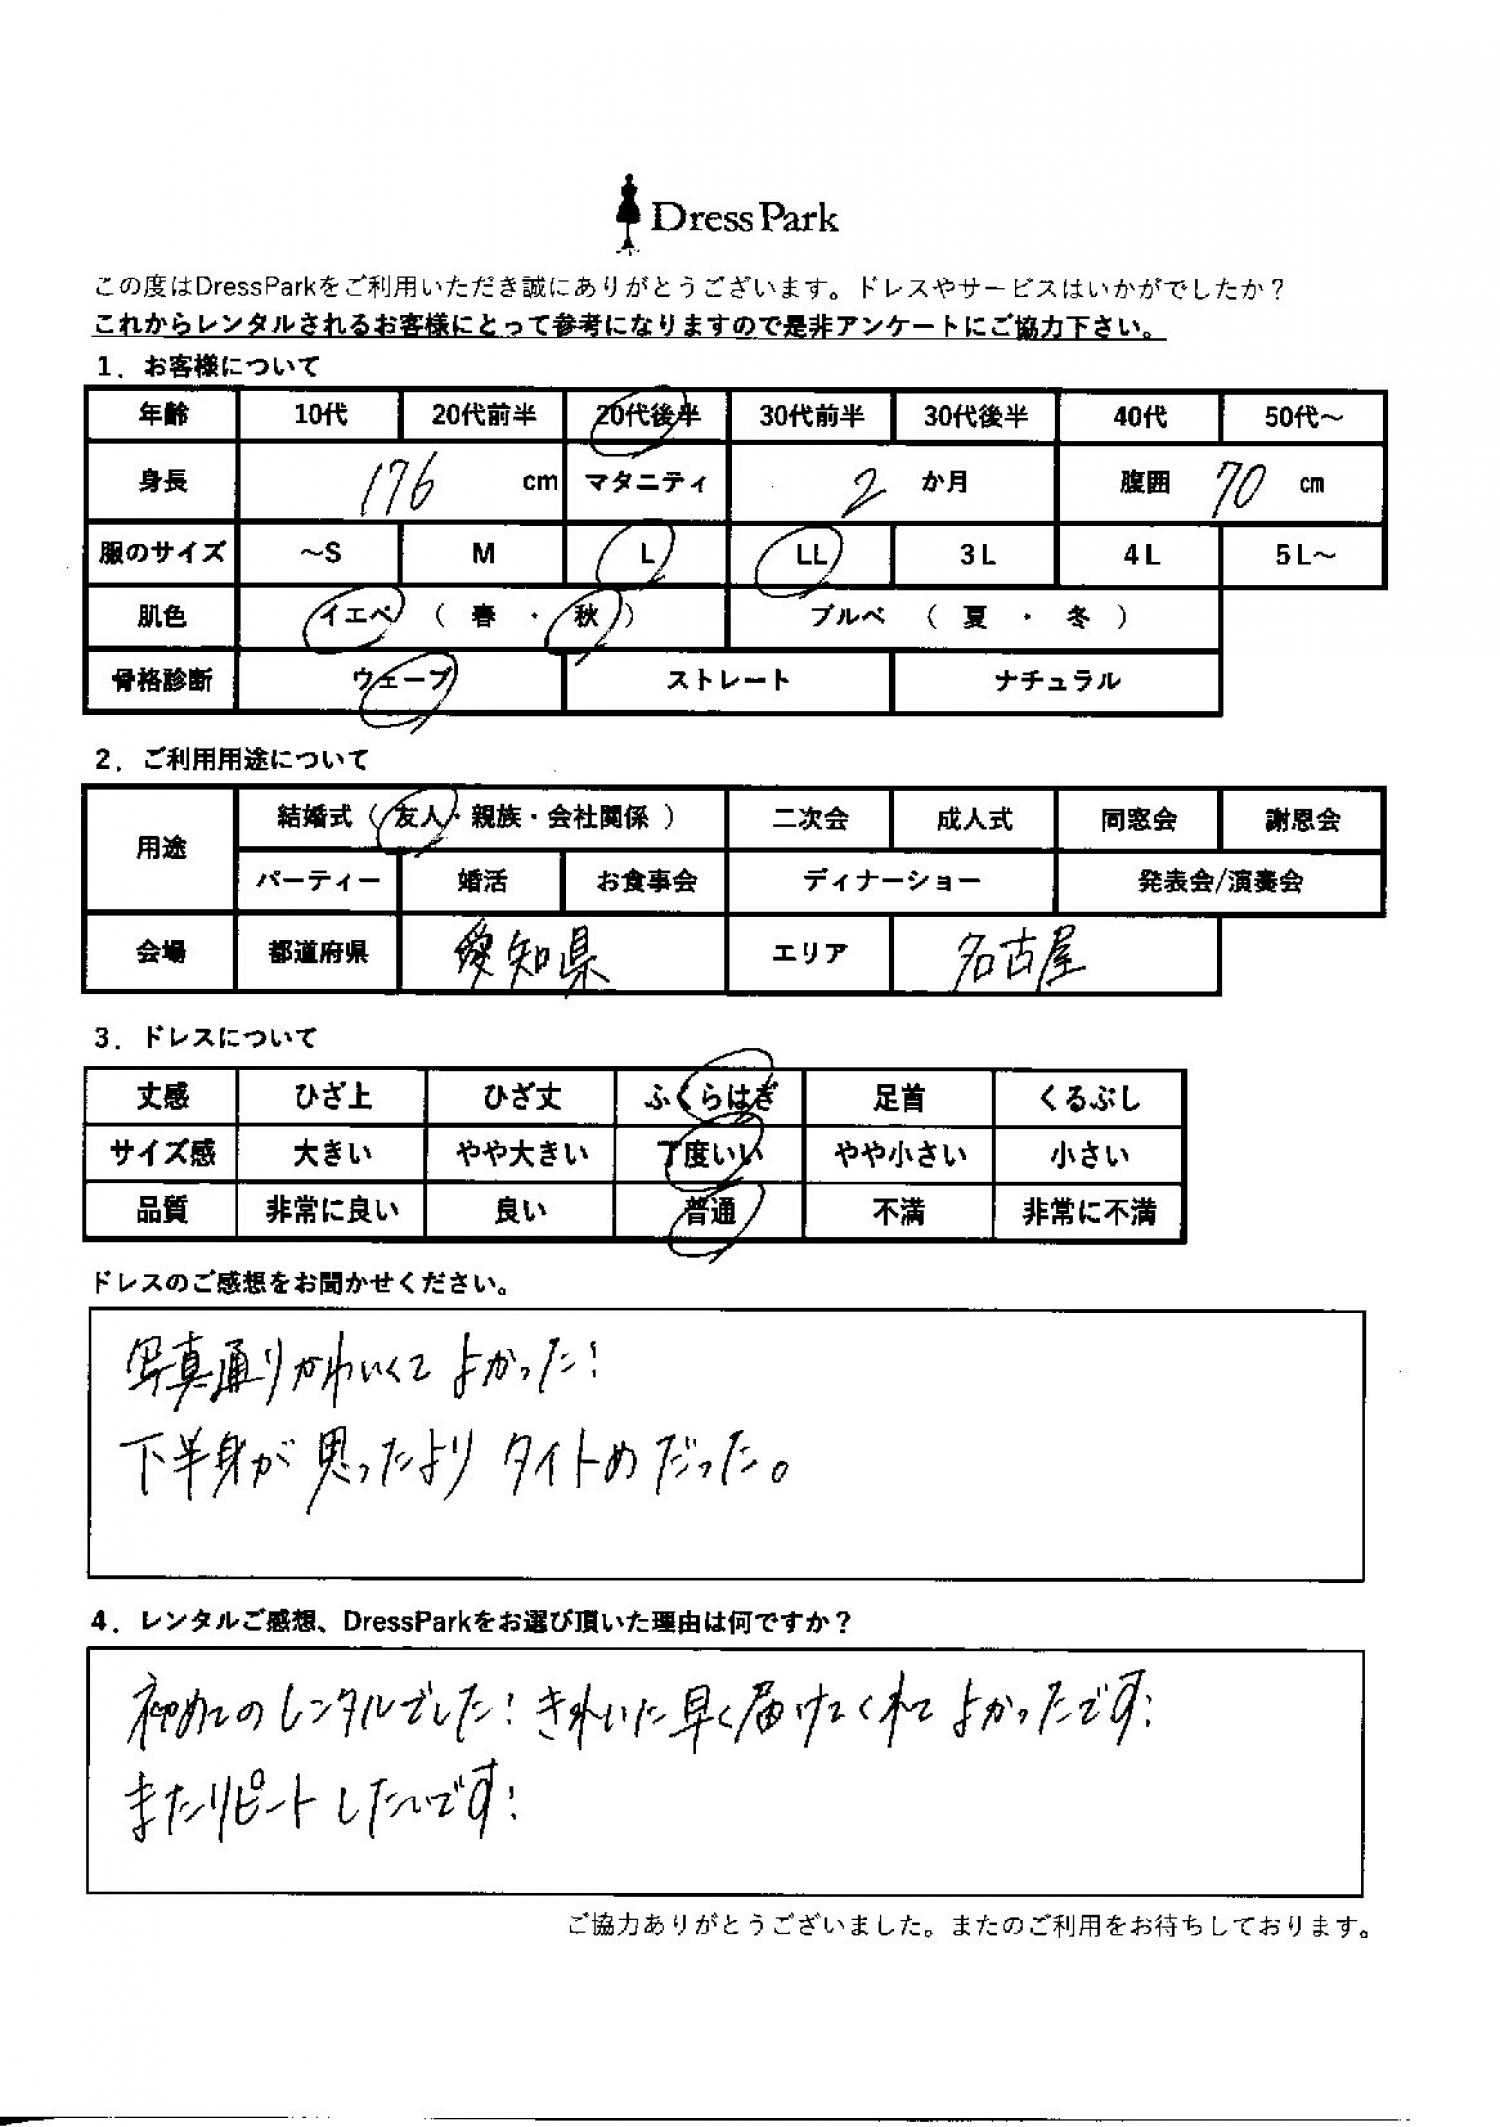 Dress Park
この度はDressParkをご利用いただき誠にありがとうございます。ドレスやサービスはいかがでしたか？
これからレンタルされるお客様にとって参考になりますので是非アンケートにご協力下さい。
1．お客様について
年齢 10代 20代前半 20代後半 30代前半 30代後半 40代 50代～
身長 176 cm マタニティ 2 か月 腹囲 70 cm
服のサイズ ～S M L LL 3L 4L 5L～
肌色 イエベ （ 春 ・ 秋 ） ブルベ （ 夏 ・ 冬 ）
骨格診断 ウェーブ ストレート ナチュラル
2．ご利用用途について
用途 結婚式（ 友人・親族・会社関係 ） 二次会 成人式 同窓会 謝恩会
パーティー 婚活 お食事会 ディナーショー 発表会/演奏会
会場 都道府県 愛知県 エリア 名古屋
3．ドレスについて
丈感 ひざ上 ひざ丈 ふくらはぎ 足首 くるぶし
サイズ感 大きい やや大きい 丁度いい やや小さい 小さい
品質 非常に良い 良い 普通 不満 非常に不満
ドレスのご感想をお聞かせください。
写真通りかわいくてよかった！
下半身が思ったよりタイトめだった。
4．レンタルご感想、DressParkをお選び頂いた理由は何ですか？
初めてのレンタルでした！きれいに早く届けてくれてよかったです！
またリピートしたいです！
ご協力ありがとうございました。またのご利用をお待ちしております。